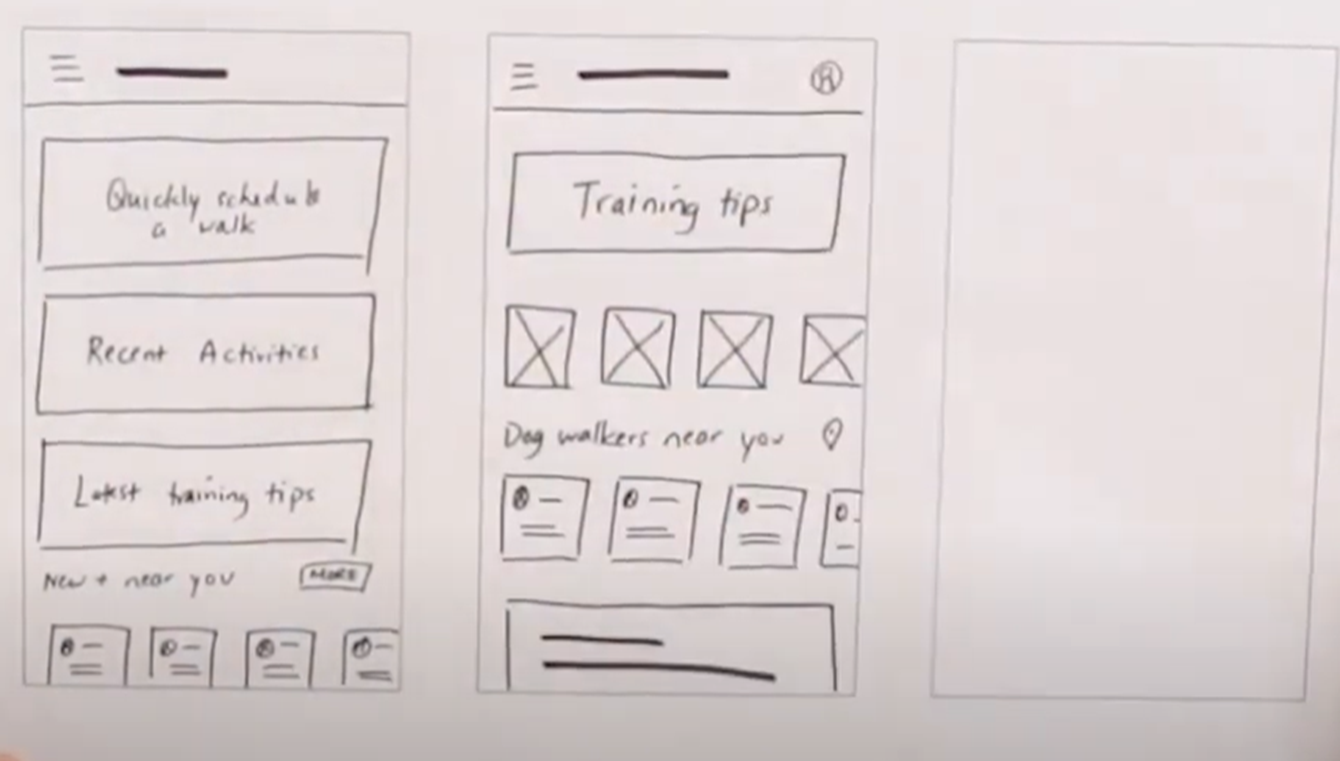 Quickly schedule
a walk
Recent Activities
Latest training tips
New + near you
MORE
Training tips
Dog walkers near you